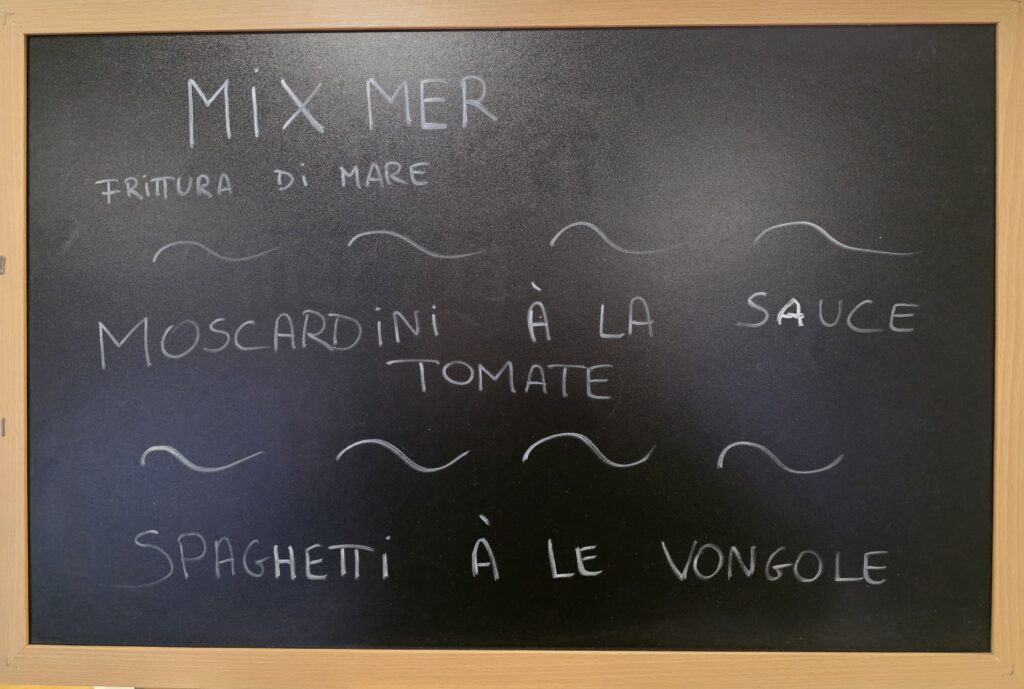 MiX MER
FRITTURA Di MARE
MOSCARDiNi À LA SAUCE
TOMATE
SPAGHETTi À LE VONGOLE